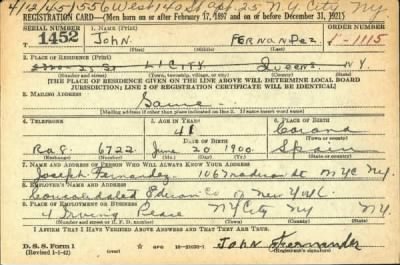 4/12/45) 556 West 140 St Apt. 25, N.Y. City NY
REGISTRATION CARD—(Men born on or after February 17, 1897 and on or before December 31, 1921)
SERIAL NUMBER 1. NAME (Print) ORDER NUMBER
1452 John FERNANDEZ 1-1115
(First) (Middle) (Last)
2. PLACE OF RESIDENCE (Print)
23 St L I CITY Queens N.Y.
(Number and street) (Town, township, village, or city) (County) (State)
[THE PLACE OF RESIDENCE GIVEN ON THE LINE ABOVE WILL DETERMINE LOCAL BOARD
JURISDICTION; LINE 2 OF REGISTRATION CERTIFICATE WILL BE IDENTICAL]
3. MAILING ADDRESS
Same
[Mailing address if other than place indicated on line 2. If same insert word same]
4. TELEPHONE 5. AGE IN YEARS 6. PLACE OF BIRTH
41
DATE OF BIRTH (Town or county)
Ra 8 6722 June 20 1900 Spain
(Exchange) (Number) (Mo.) (Day) (Yr.) (State or country)
7. NAME AND ADDRESS OF PERSON WHO WILL ALWAYS KNOW YOUR ADDRESS
Joseph Fernandez 106 Madison St NYC NY.
8. EMPLOYER'S NAME AND ADDRESS
Consolidated Edison Co of New York
9. PLACE OF EMPLOYMENT OR BUSINESS
4 Irving Place NY City NY
(Number and street or R. F. D. number) (Town) (County) (State)
I AFFIRM THAT I HAVE VERIFIED ABOVE ANSWERS AND THAT THEY ARE TRUE.
D. S. S. Form 1
(Revised 1-1-42) (over) GPO John Fernandez
(Registrant's signature)